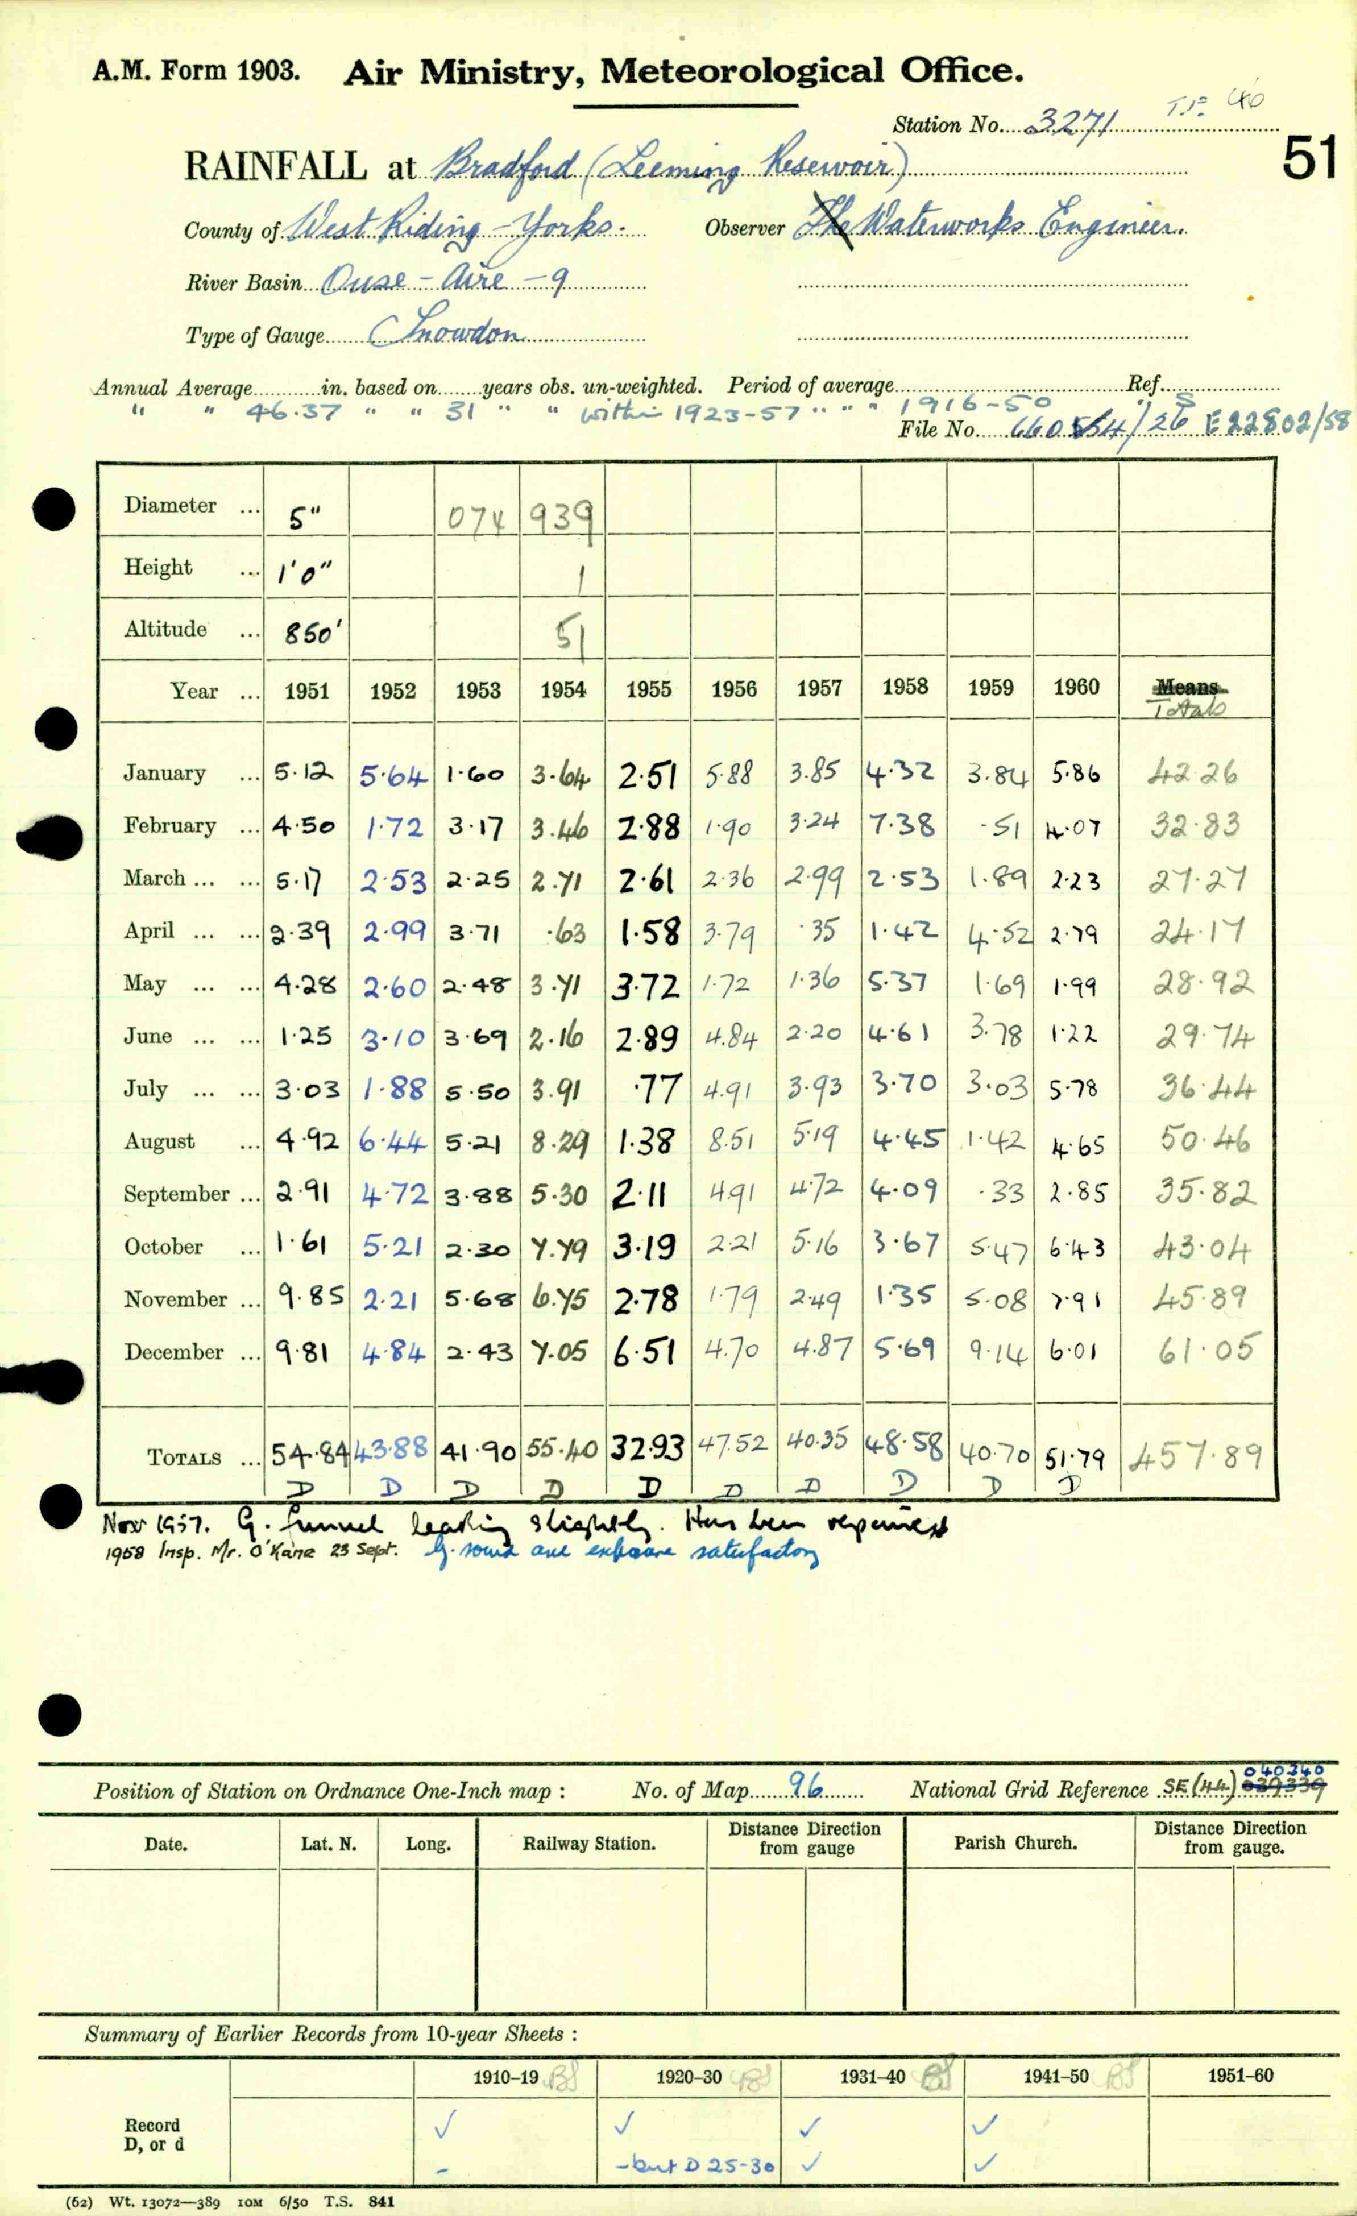 A.M. Form 1903. Air Ministry, Meteorological Office.
Station No. 3271
51
RAINFALL at Bradford (Leeming Reservoir)
County of West Riding - Yorks. Observer The Waterworks Engineer.
River Basin Ouse - Aire - 9
Type of Gauge Snowdon
Annual Average in. based on years obs. un-weighted. Period of average Ref.
" " 46.37 " " 31 " " within 1923-57 " " " 1916-50 " S
File No. /26 E22802/58
Diameter ... 5" 074 939
Height ... 1'0" 1
Altitude ... 850' 51
Year ... 1951 1952 1953 1954 1955 1956 1957 1958 1959 1960 Means
Totals
January ... 5.12 5.64 1.60 3.64 2.51 5.88 3.85 4.32 3.84 5.86 42.26
February ... 4.50 1.72 3.17 3.46 2.88 1.90 3.24 7.38 .51 4.07 32.83
March ... ... 5.17 2.53 2.25 2.71 2.61 2.36 2.99 2.53 1.89 2.23 27.27
April ... ... 2.39 2.99 3.71 .63 1.58 3.79 .35 1.42 4.52 2.79 24.17
May ... ... 4.28 2.60 2.48 3.71 3.72 1.72 1.36 5.37 1.69 1.99 28.92
June ... ... 1.25 3.10 3.69 2.16 2.89 4.84 2.20 4.61 3.78 1.22 29.74
July ... ... 3.03 1.88 5.50 3.91 .77 4.91 3.93 3.70 3.03 5.78 36.44
August ... 4.92 6.44 5.21 8.29 1.38 8.51 5.19 4.45 1.42 4.65 50.46
September ... 2.91 4.72 3.88 5.30 2.11 4.91 4.72 4.09 .33 2.85 35.82
October ... 1.61 5.21 2.30 7.79 3.19 2.21 5.16 3.67 5.47 6.43 43.04
November ... 9.85 2.21 5.68 6.75 2.78 1.79 2.49 1.35 5.08 7.91 45.89
December ... 9.81 4.84 2.43 7.05 6.51 4.70 4.87 5.69 9.14 6.01 61.05
TOTALS ... 54.84 43.88 41.90 55.40 32.93 47.52 40.35 48.58 40.70 51.79 457.89
D D D D D D D D D D
Nov 1957. G. funnel leaking slightly. Has been repaired
1958 Insp. Mr. O'Kane 23 Sept. G. sound and exposure satisfactory
Position of Station on Ordnance One-Inch map : No. of Map 96 National Grid Reference SE(44) 039339
040340
Date. Lat. N. Long. Railway Station. Distance from gauge Direction Parish Church. Distance from gauge. Direction
Summary of Earlier Records from 10-year Sheets :
1910-19 1920-30 1931-40 1941-50 1951-60
Record ✓ ✓ ✓ ✓
D, or d - -but D 25-30 ✓ ✓
(62) Wt. 13072—389 10M 6/50 T.S. 841